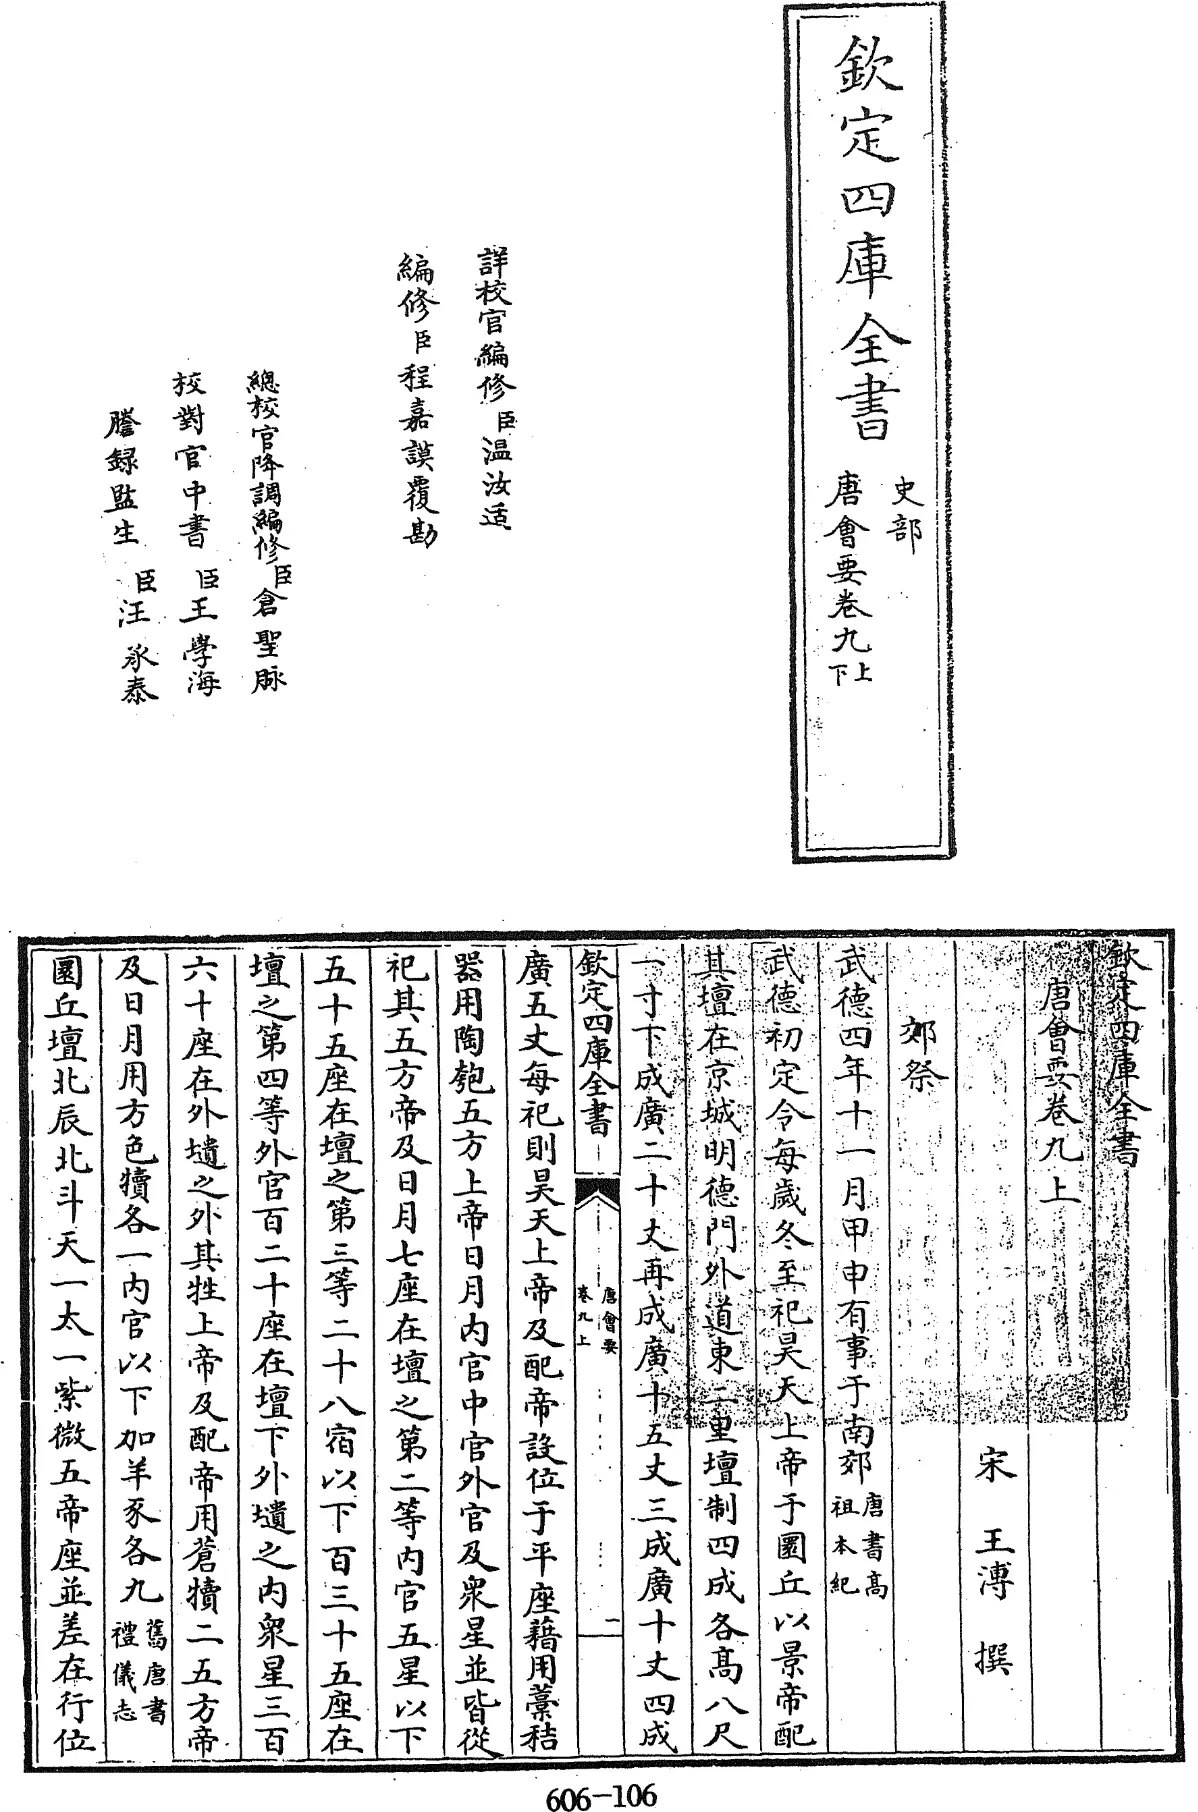 欽定四庫全書
史部
唐會要卷九上下
詳校官編修臣温汝适
編修臣程嘉謨覆勘
總校官降調編修臣倉聖脉
校對官中書臣王學海
謄録監生臣汪永泰
欽定四庫全書
唐會要卷九上
宋 王溥 撰
郊祭
武德四年十一月甲申有事于南郊唐書高祖本紀
武德初定令每歲冬至祀昊天上帝于圜丘以景帝配
其壇在京城明德門外道東二里壇制四成各高八尺
一寸下成廣二十丈再成廣十五丈三成廣十丈四成
欽定四庫全書
唐會要
卷九上
廣五丈每祀則昊天上帝及配帝設位于平座藉用藁秸
器用陶匏五方上帝日月内官中官外官及衆星並皆從
祀其五方帝及日月七座在壇之第二等内官五星以下
五十五座在壇之第三等二十八宿以下百三十五座在
壇之第四等外官百二十座在壇下外壝之内衆星三百
六十座在外壝之外其牲上帝及配帝用蒼犢二五方帝
及日月用方色犢各一内官以下加羊豕各九舊唐書禮儀志
圜丘壇北辰北斗天一太一紫微五帝座並差在行位
606-106